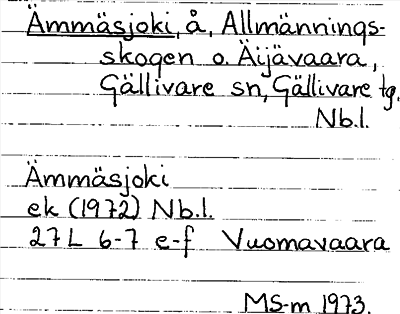 Ämmäsjoki, å, Allmännings-
skogen o. Äijävaara,
Gällivare sn, Gällivare tg.
Nb.l.
Ämmäsjoki
ek (1972) Nb.l.
27L 6-7 e-f Vuomavaara
MS-m 1973.